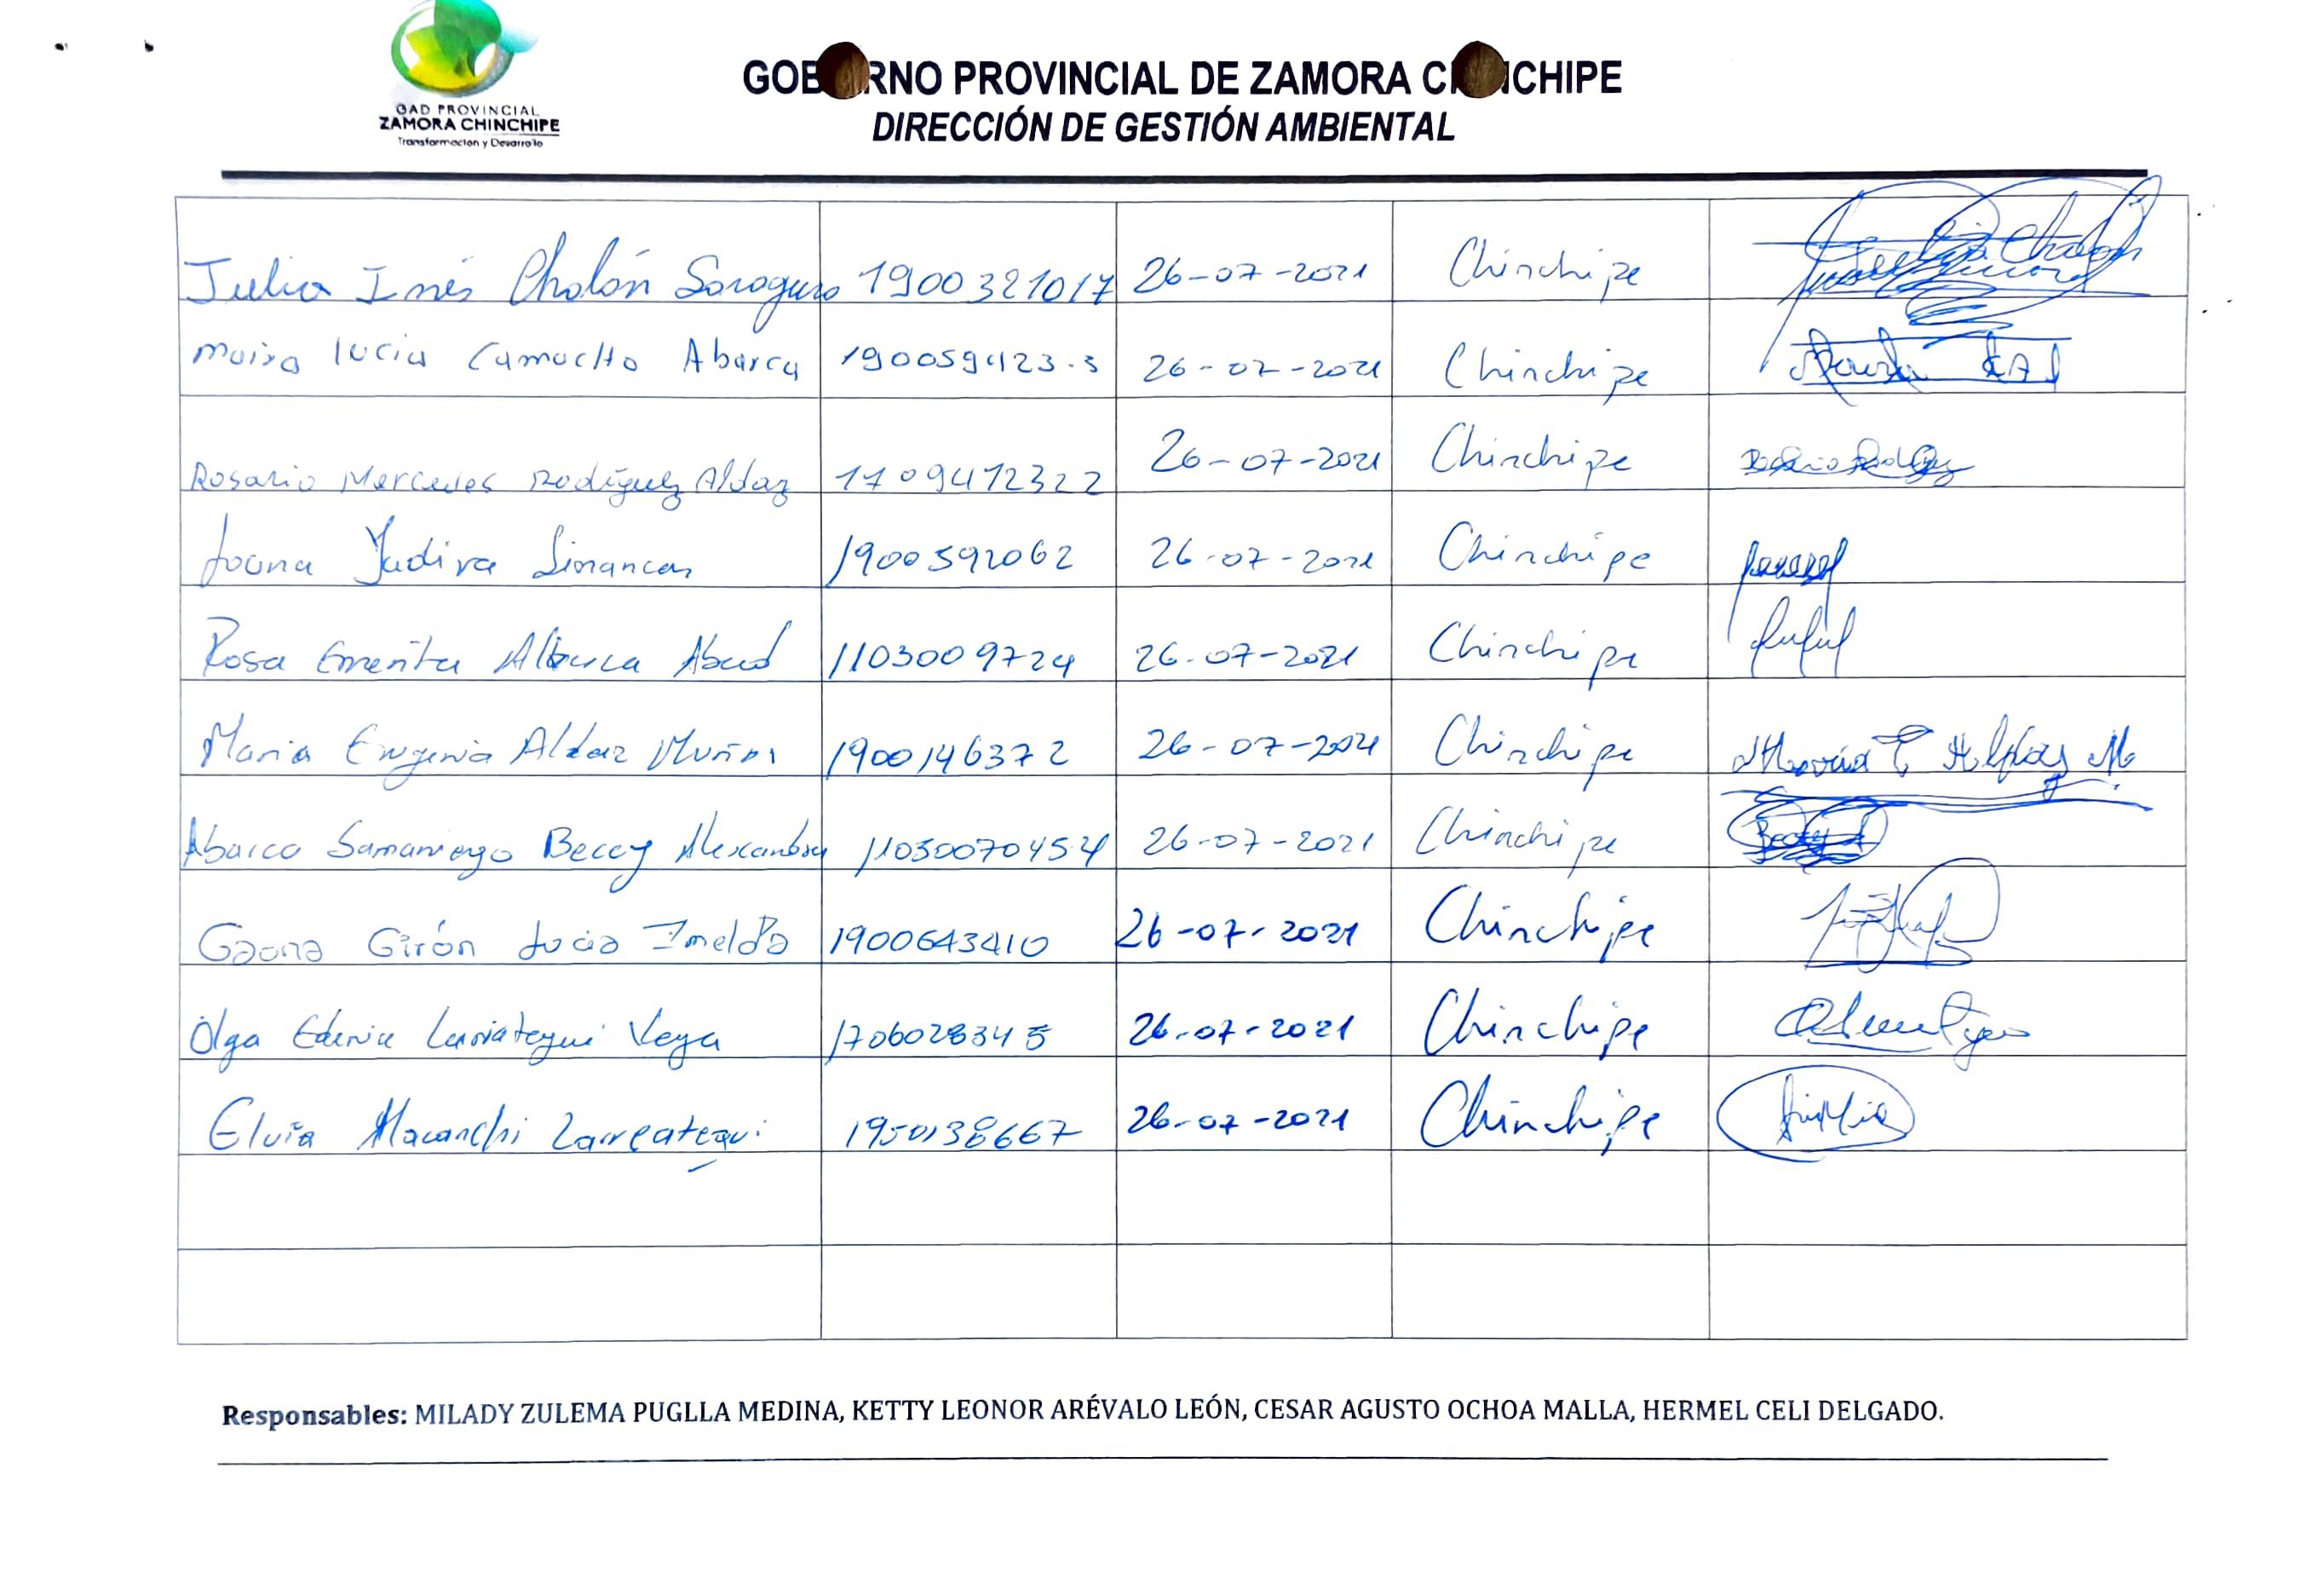 GAD PROVINCIAL
ZAMORA CHINCHIPE
Transformacion y Desarrollo
GOB RNO PROVINCIAL DE ZAMORA C NCHIPE
DIRECCIÓN DE GESTIÓN AMBIENTAL
Julia Inés Cholón Soroguro 1900321017 26-07-2021 Chinchipe
Maira lucia Camacho Abarca 190059423-3 26-07-2021 Chinchipe
Rosario Mercedes Rodriguez Aldaz 1709412322 26-07-2021 Chinchipe
Joana Yadira Simancas 1900592062 26-07-2021 Chinchipe
Rosa Emerita Albarca Abad 1103009724 26-07-2021 Chinchipe
Maria Eugenia Aldaz Muñoz 1900146372 26-07-2021 Chinchipe Maria E Aldaz M.
Abarca Samaniego Beccy Alexandra 11030070454 26-07-2021 Chinchipe
Gaona Girón Lucia Imelda 1900643410 26-07-2021 Chinchipe
Olga Edenia Lariategui Vega 1706028345 26-07-2021 Chinchipe
Elvia Macanchi Larreategui 1950138667 26-07-2021 Chinchipe
Responsables: MILADY ZULEMA PUGLLA MEDINA, KETTY LEONOR ARÉVALO LEÓN, CESAR AGUSTO OCHOA MALLA, HERMEL CELI DELGADO.